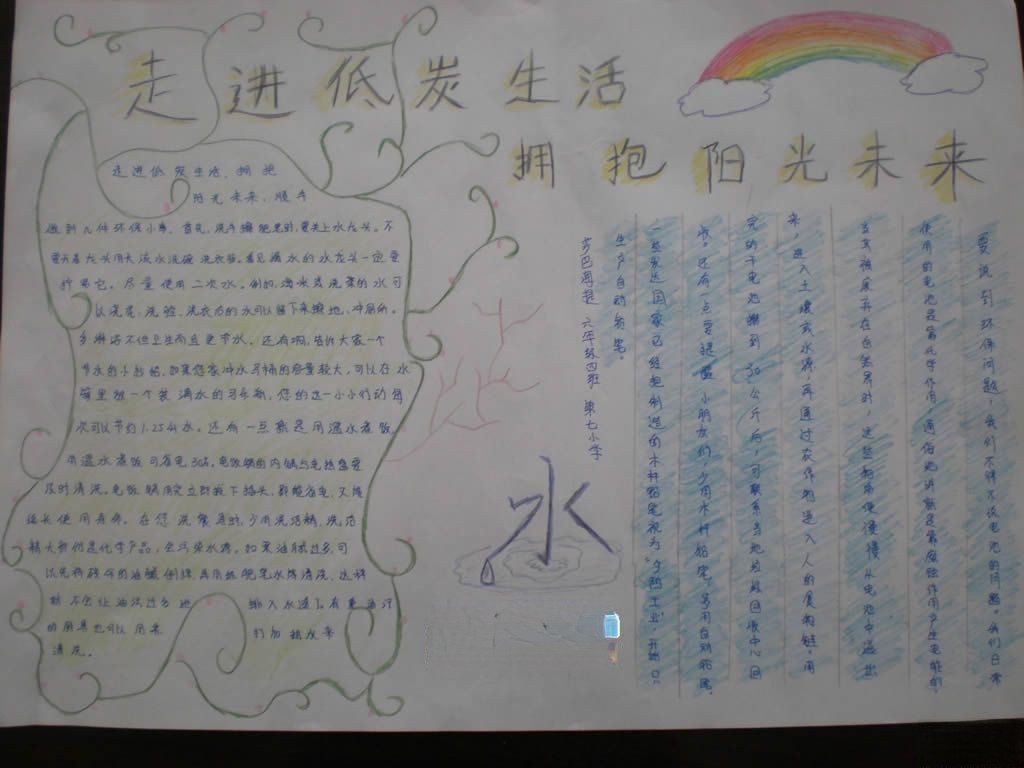 走进低炭生活
拥抱阳光未来
走进低炭生活、拥抱
阳光未来,顺手
做到几件环保小事。首先,洗手擦肥皂时,要关上水龙头。不
要开着龙头用长流水洗碗洗衣服。看见漏水的水龙头一定要
拧紧它。尽量使用二次水。例如,淘米或洗菜的水可
以浇花,洗脸、洗衣后的水可以留下来擦地、冲厕所。
多淋浴不但卫生而且更节水。还有啊,告诉大家一个
节水的小妙招,如果您家冲水马桶的容量较大,可以在水
箱里放一个装满水的可乐瓶,您的这一小小行动每
次可以节约1.25斤水。还有一点就是用温水煮饭
用温水煮饭可省电30%。电饭锅的内锅与电热盘要
及时清洗。电饭锅用完立即拔下插头,既能省电,又能
延长使用寿命。在您洗餐具时,少用洗洁精,洗洁
精大部份是化学产品,会污染水源。如果油腻过多,可
以先将残余的油腻倒掉,再用热肥皂水等清洗,这样
就不会让油污过多地 排入水道了。有重油污
的厨具也可以用来 来
清洗。
水
要说到环保问题,我们不得不谈电池的问题。我们日常
使用的电池是靠化学作用,通俗地讲就是靠腐蚀作用产生电能的。
当其被废弃在自然界时,这些物质便慢慢从电池中溢出
来,进入土壤或水源,再通过农作物进入人的食物链。用
完的干电池攒到30公斤后,可联系当地垃圾回收中心回
收。还有一点要提醒小朋友们,少用木杆铅笔,多用自动铅笔。
一些发达国家已经把制造的木杆铅笔视为“夕阳工业”,开始只
生产自动铅笔。
六年级四班 第七小学